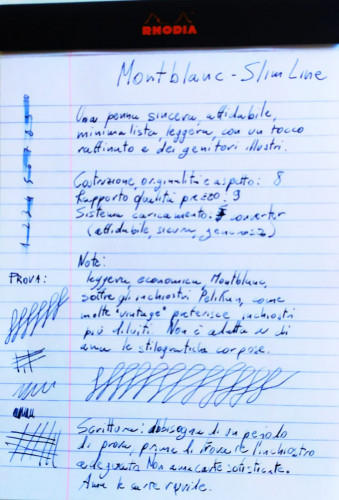 RHODIA
Montblanc - Slim Line
Una penna sincera, affidabile,
minimalista, leggera, con un tocco
raffinato e dei genitori illustri.
Costruzione, originalità e aspetto: 8
Rapporto qualità prezzo: 9
Sistema caricamento: converter
(affidabile, sicura, generosa)
Note:
PROVA: leggera, economica, Montblanc,
soffre gli inchiostri Pelikan, come
molte "vintage" preferisce inchiostri
più diluiti. Non è adatta a chi
ama le stilografiche corpose.
Scrittura: abbisogna di un periodo
di prova, prima di trovare l'inchiostro
adeguato. Non ama carte
Ama le carte ruvide.